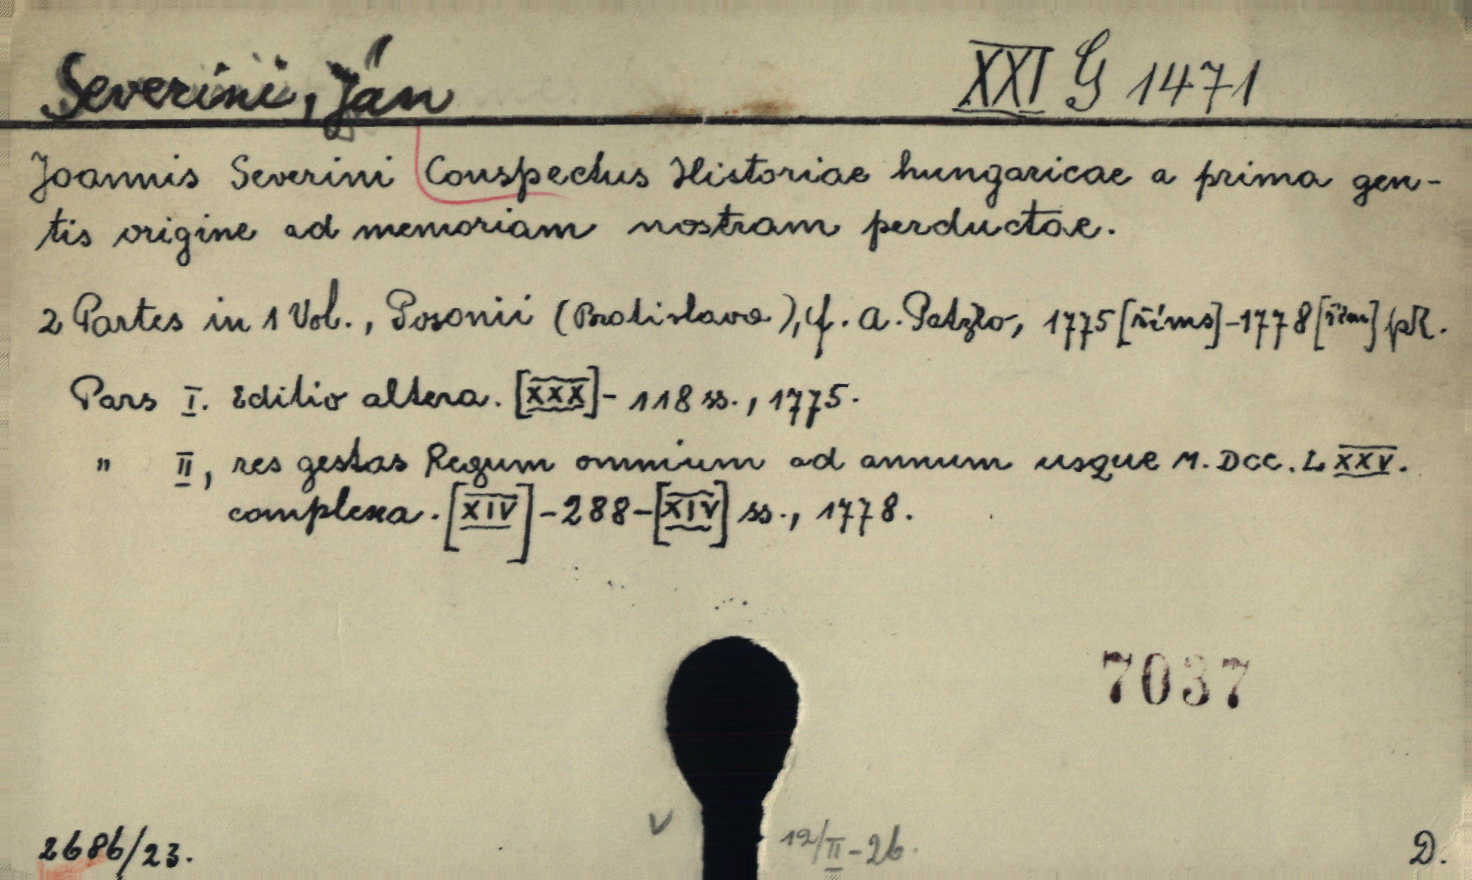 Severini, Ján
XXI G 1471
Joannis Severini Conspectus Historiae hungaricae a prima gen-
tis origine ad memoriam nostram perductae.
2 Partes in 1 Vol., Posonii (Bratislava), f. A. Patzko, 1775 [říms] - 1778 [říms] pR.
Pars I. Editio altera. [XXX] - 118 ss., 1775.
" II, res gestas Regum omnium ad annum usque M.DCC.LXXV.
complexa. [XIV] - 288 - [XIV] ss., 1778.
7037
2686/23.
v
12/II - 26.
D.